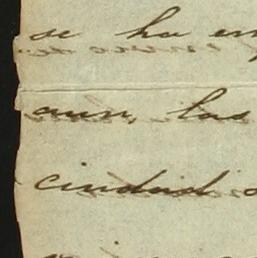 se ha em
aun, las
ciudad s